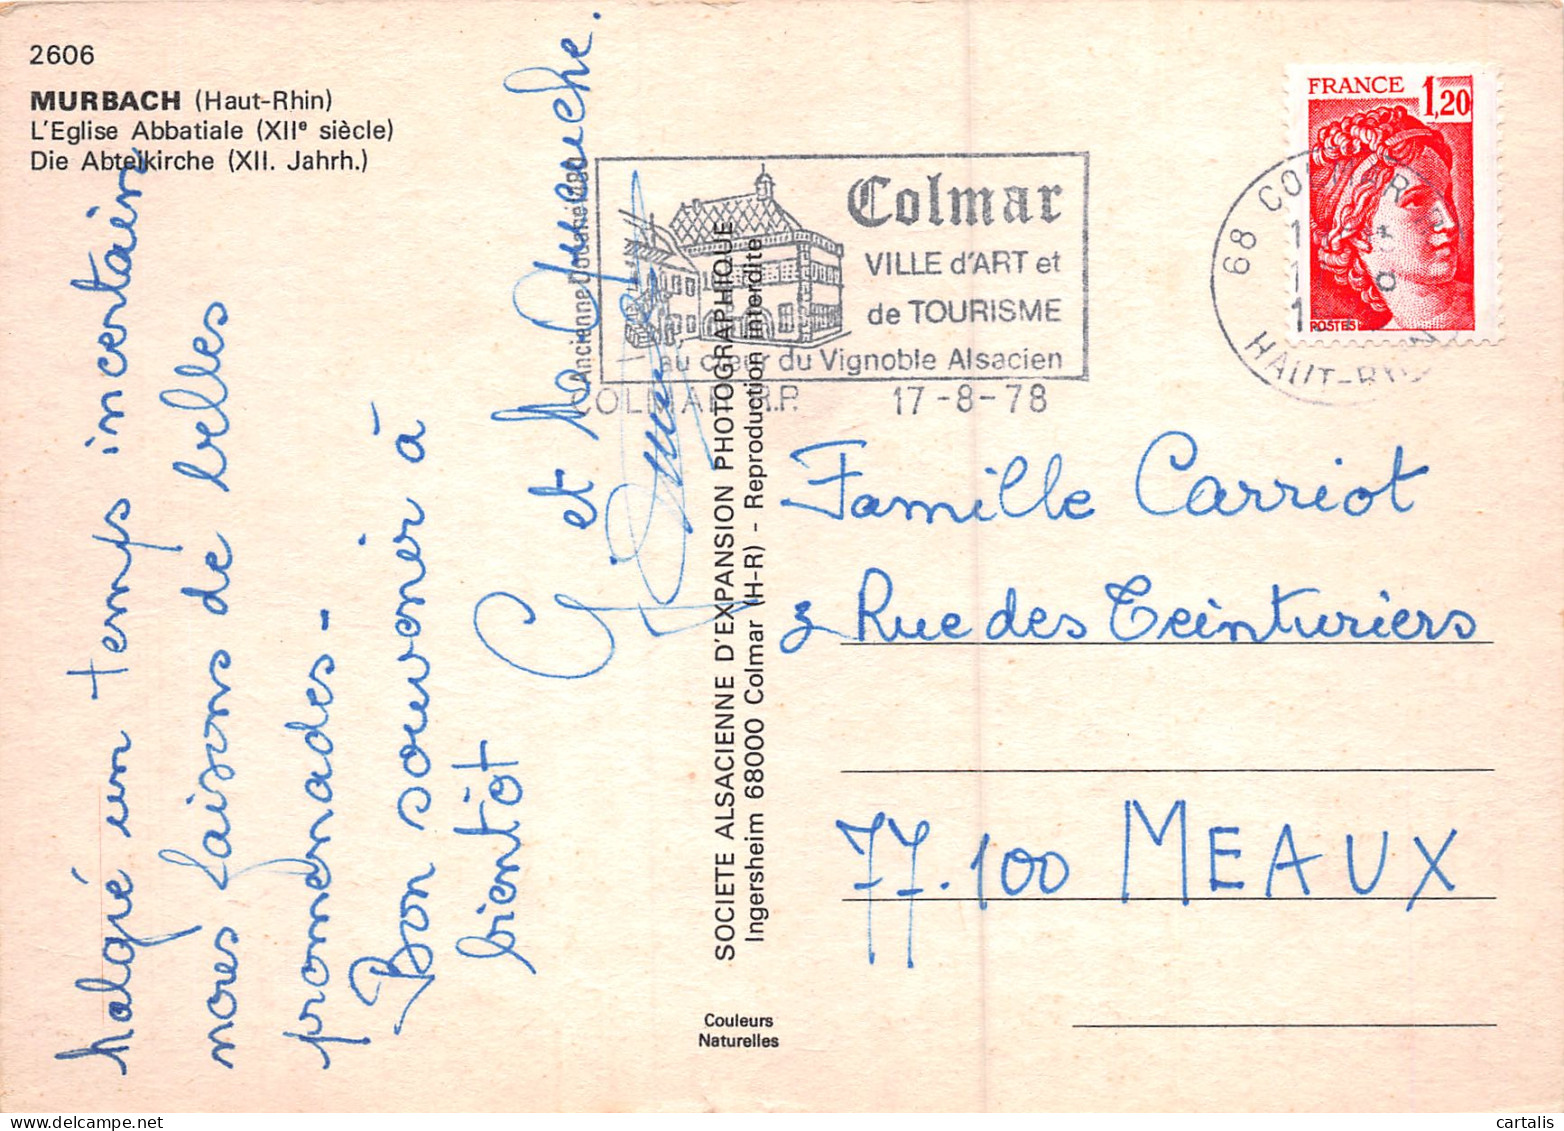 2606
MURBACH (Haut-Rhin)
L'Eglise Abbatiale (XIIe siècle)
Die Abteikirche (XII. Jahrh.)
malgré un temps incertain
nous faisons de belles
promenades -
Bon souvenir à
bientôt
et
SOCIETE ALSACIENNE D'EXPANSION PHOTOGRAPHIQUE
Ingersheim 68000 Colmar (H-R) - Reproduction interdite
Couleurs
Naturelles
Ancienne Douane 1480
Colmar
VILLE d'ART et
de TOURISME
au cœur du Vignoble Alsacien
COLMAR R.P. 17-8-78
68 COLMAR R.P.
HAUT-RHIN
FRANCE 1,20
POSTES
Famille Carriot
3 Rue des Teinturiers
77.100 MEAUX
cartalis